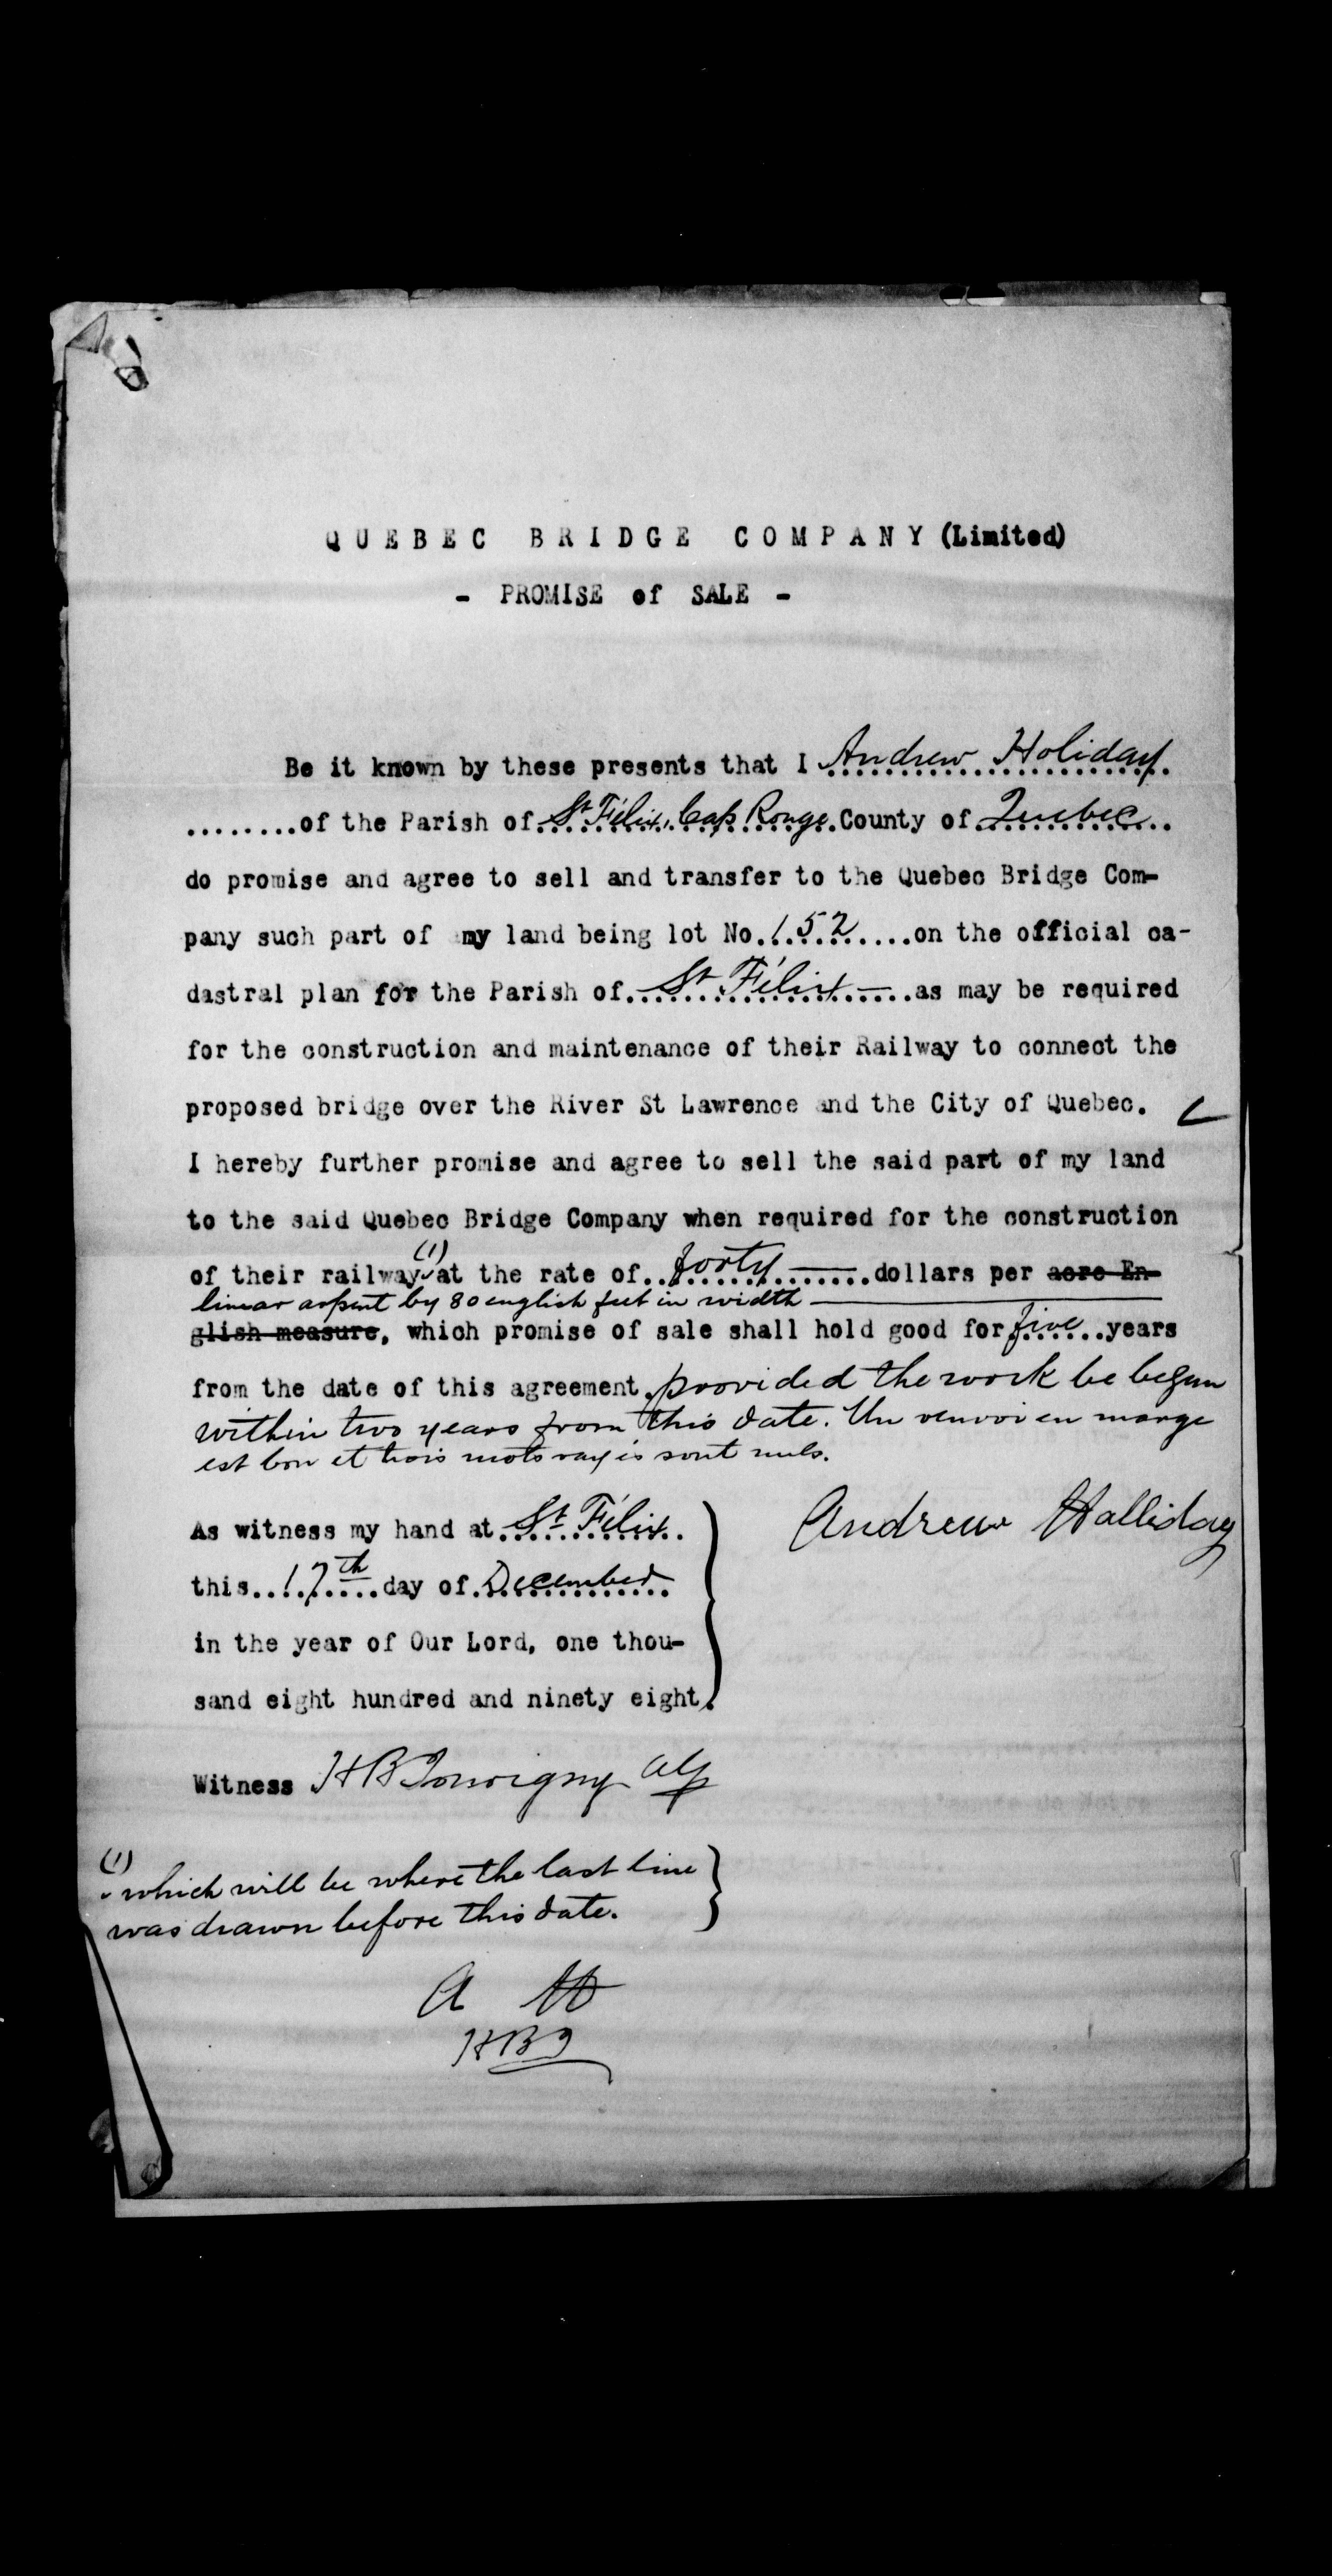 QUEBEC BRIDGE COMPANY (Limited)
- PROMISE of SALE -
Be it known by these presents that I Andrew Holiday
........of the Parish of St Félix, Cap Rouge County of Quebec
do promise and agree to sell and transfer to the Quebec Bridge Com-
pany such part of my land being lot No. 152 on the official ca-
dastral plan for the Parish of St Félix — as may be required
for the construction and maintenance of their Railway to connect the
proposed bridge over the River St Lawrence and the City of Quebec.
I hereby further promise and agree to sell the said part of my land
to the said Quebec Bridge Company when required for the construction
of their railway (1) at the rate of forty — dollars per acre En-
linear arpent by 80 english feet in width —
glish measure, which promise of sale shall hold good for five years
from the date of this agreement, provided the work be begun
within two years from this date. Un renvoi en marge
est bon et trois mots rayés sont nuls.
As witness my hand at St Félix
Andrew Halliday
this 17th day of December
in the year of Our Lord, one thou-
sand eight hundred and ninety eight.
Witness H B
(1) which will be where the last line
was drawn before this date.
A H
H B